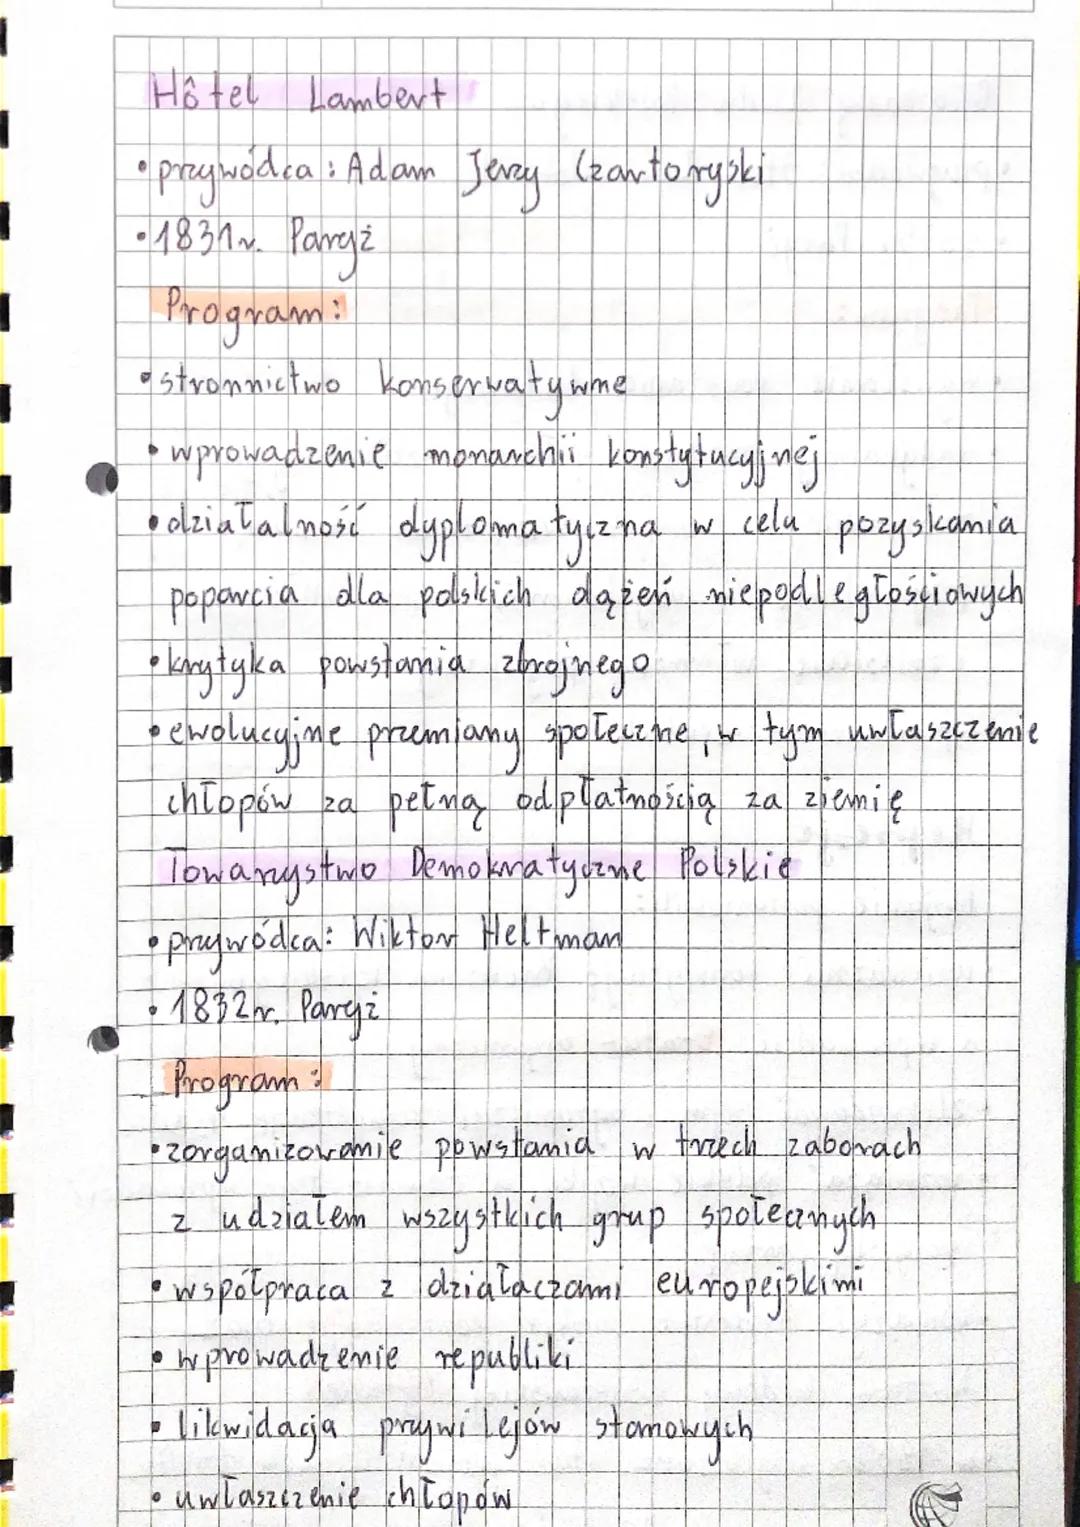 Hôtel Lambert
• przywódca: Adam Jerzy Czartoryski
• 1831r. Paryż
Program:
• stronnictwo konserwatywne
• wprowadzenie monarchii konstytucyjnej
• działalność dyplomatyczna w celu pozyskania
poparcia dla polskich dążeń niepodległościowych
• krytyka powstania zbrojnego
• ewolucyjne przemiany społeczne, w tym uwłaszczenie
chłopów za pełną odpłatnością za ziemię
Towarzystwo Demokratyczne Polskie
• przywódca: Wiktor Heltman
• 1832r. Paryż
Program:
• zorganizowanie powstania w trzech zaborach
z udziałem wszystkich grup społecznych
• współpraca z działaczami europejskimi
• wprowadzenie republiki
• likwidacja przywilejów stanowych
• uwłaszczenie chłopów